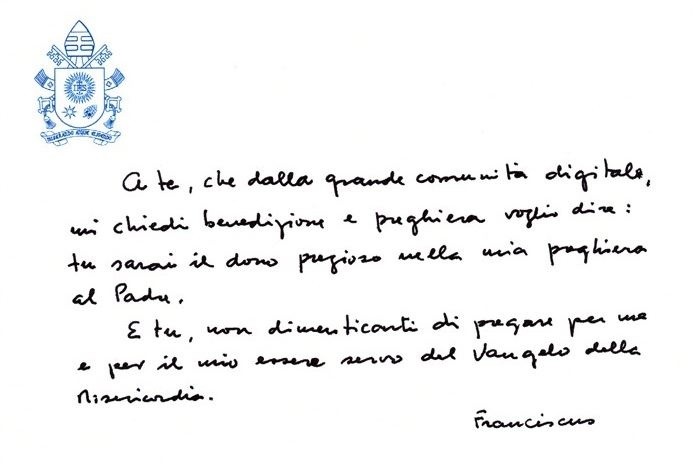 IHS
MISERANDO ATQUE ELIGENDO
A te, che dalla grande comunità digitale,
mi chiedi benedizione e preghiera voglio dire:
tu sarai il dono prezioso nella mia preghiera
al Padre.
E tu, non dimenticarti di pregare per me
e per il mio essere servo del Vangelo della
Misericordia.
Franciscus